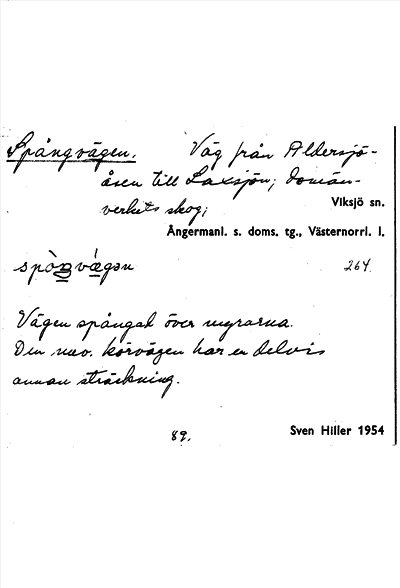 Spångvägen. Väg från Aldersjö-
åsen till Laxsjön; domän-
verkets skog;
Viksjö sn.
Ångermanl. s. doms. tg., Västernorrl. l.
264
Vägen spångad över myrarna.
Den nuv. körvägen har en delvis
annan sträckning.
89.
Sven Hiller 1954